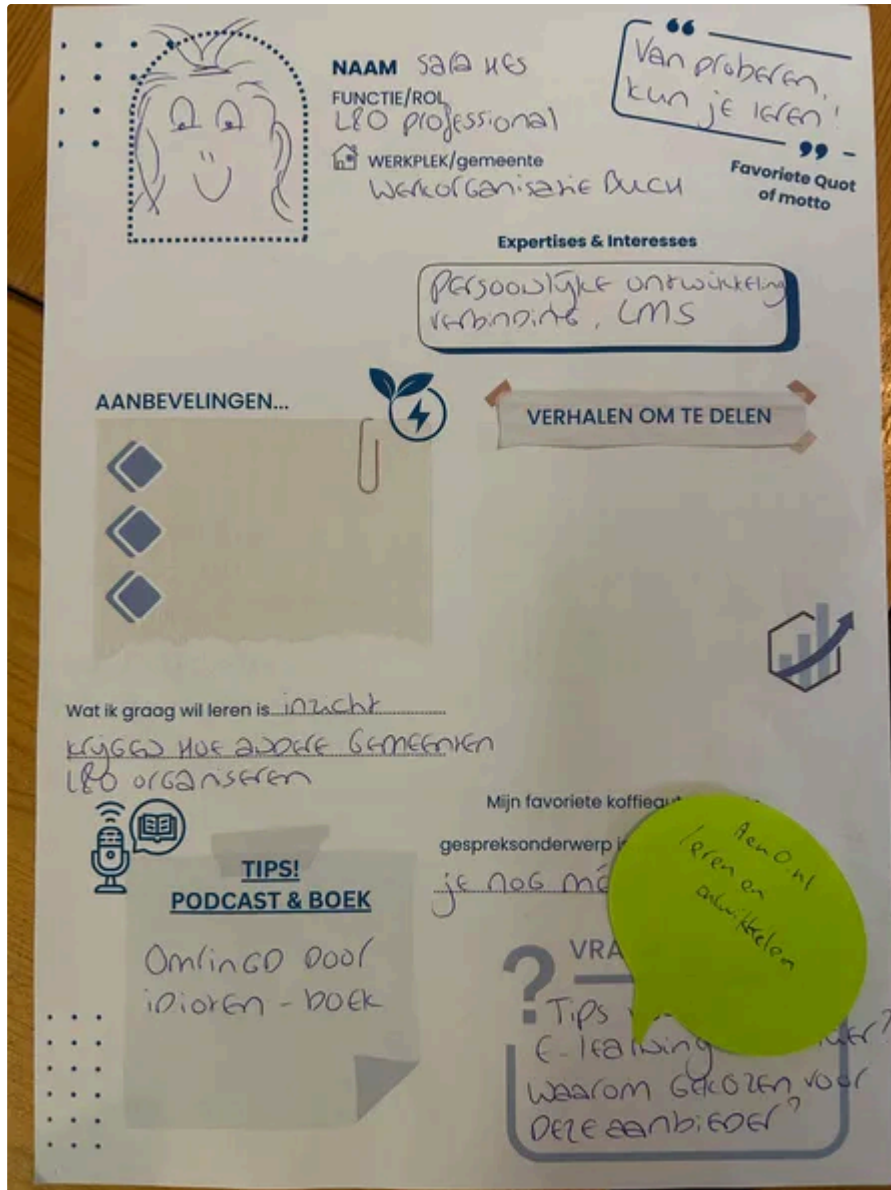 NAAM Sara Hes
FUNCTIE/ROL
L&O professional
WERKPLEK/gemeente
Werkorganisatie BUCH
“
Van proberen,
kun je leren!
”
Favoriete Quot
of motto
Expertises & Interesses
persoonlijke ontwikkeling
verbinding, LMS
AANBEVELINGEN...
VERHALEN OM TE DELEN
Wat ik graag wil leren is inzicht
krijgen hoe andere gemeenten
L&O organiseren
Mijn favoriete koffieaut
gespreksonderwerp i
je nog mé
TIPS!
PODCAST & BOEK
Omringd door
idioten - boek
AenO.nl
leren en
ontwikkelen
? VRA
Tips
E-learning
waarom gekozen voor
deze aanbieder?